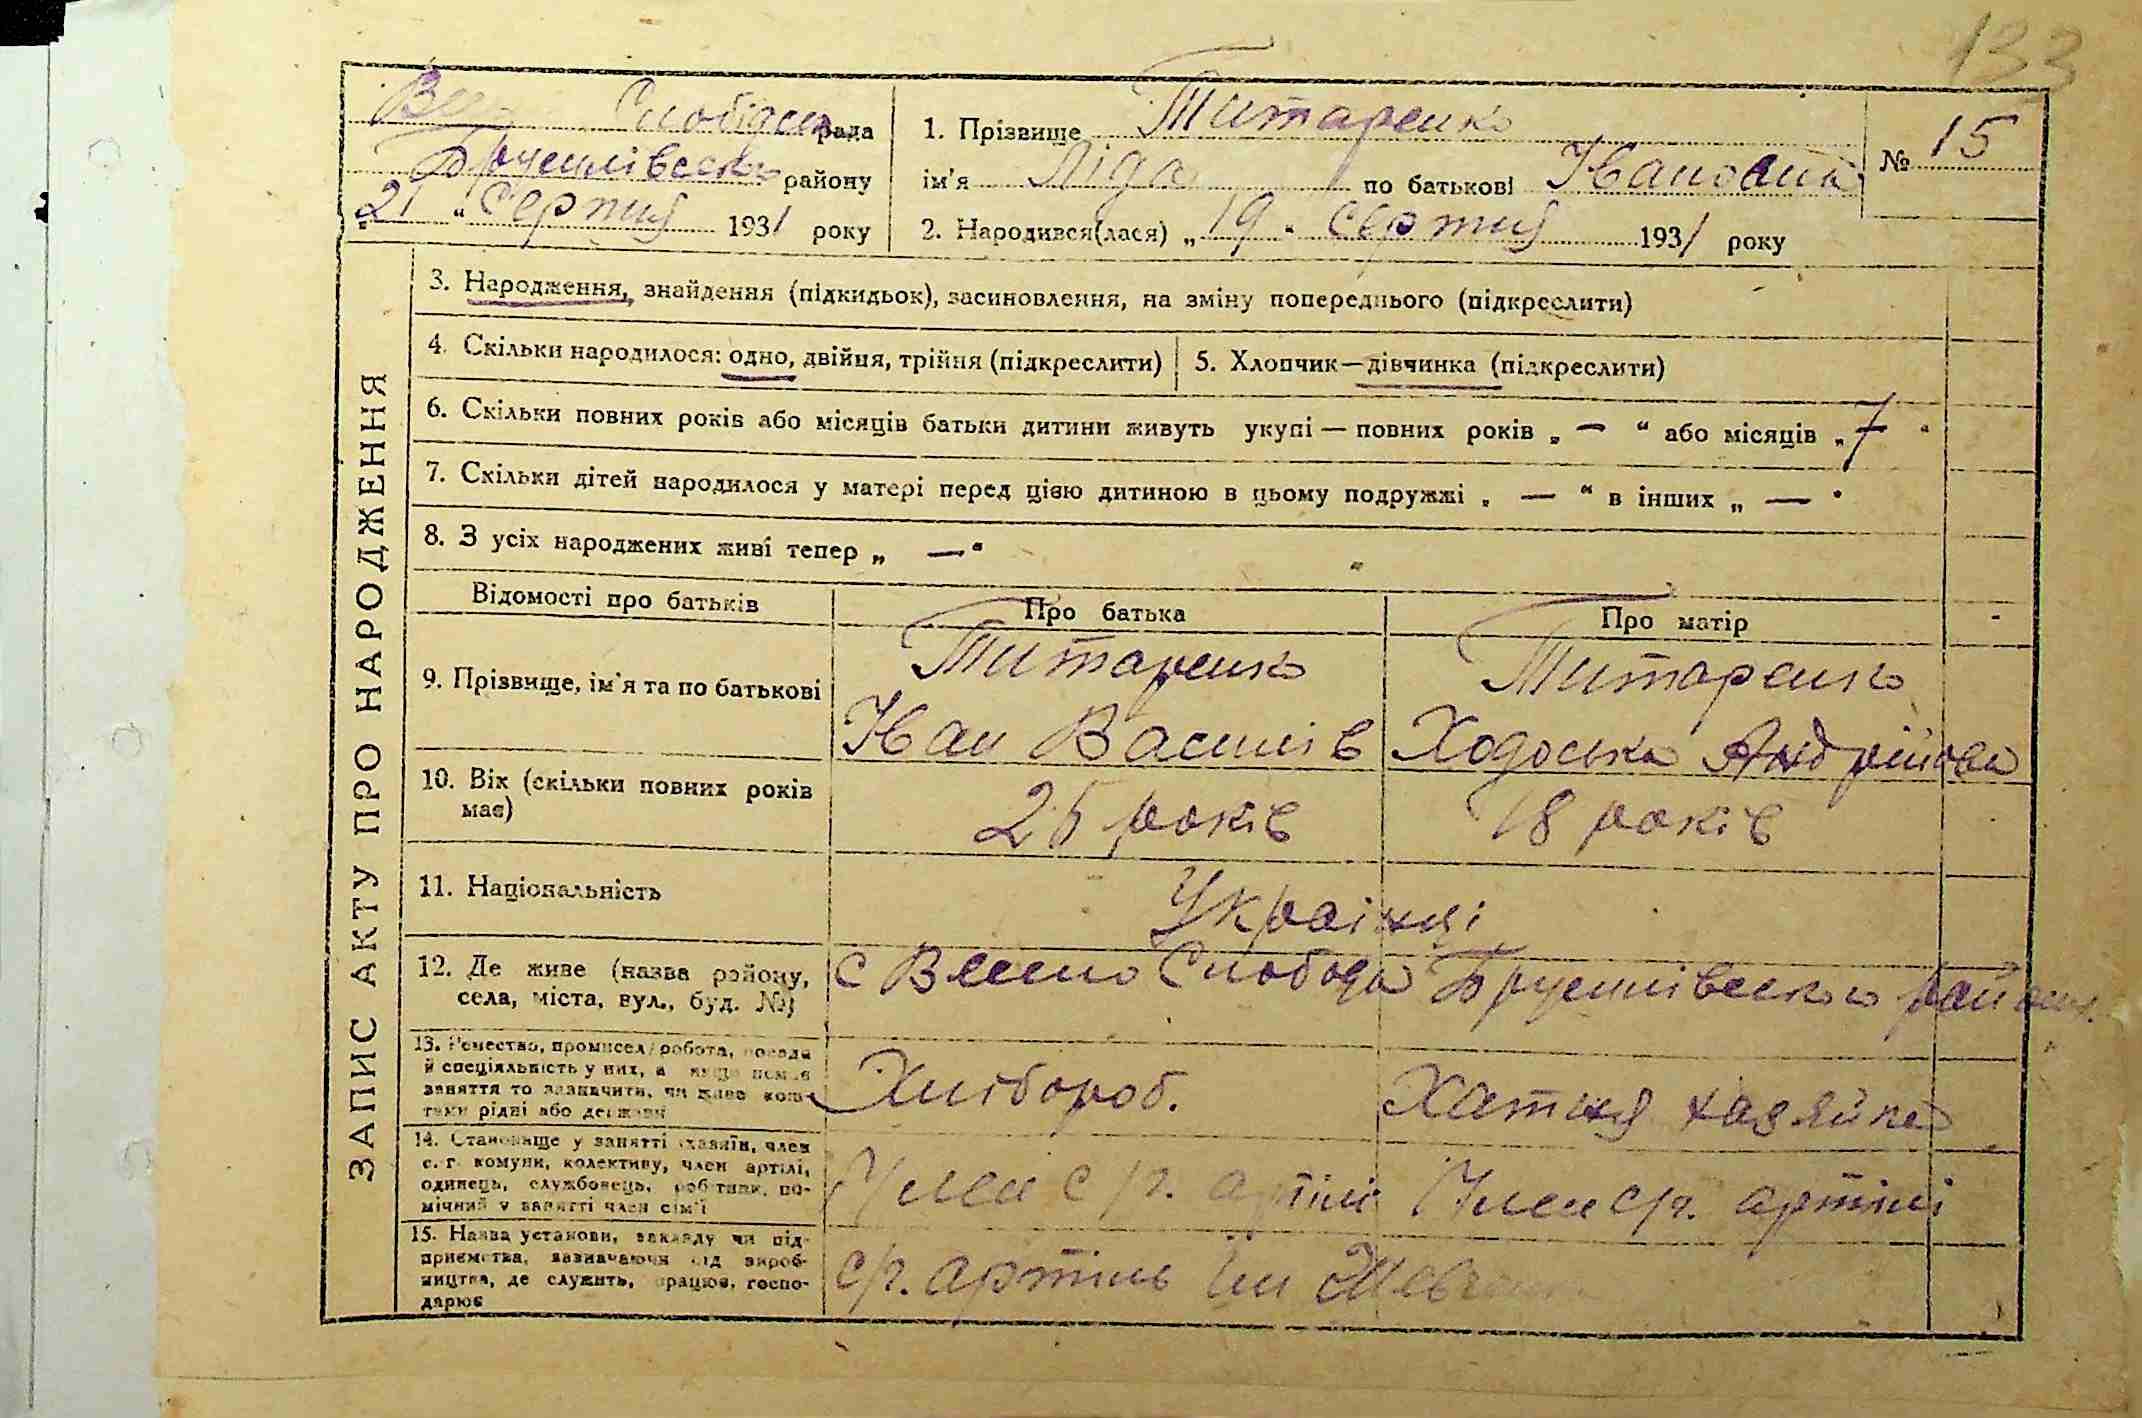 133
Слобідська рада
Брусилівськ району
„21“ Серпня 1931 року
1. Прізвище Титаренко
ім'я Ліда по батькові Івановна
2. Народився(лася) „19“ Серпня 1931 року
№ 15
ЗАПИС АКТУ ПРО НАРОДЖЕННЯ
3. Народження, знайдення (підкидьок), засиновлення, на зміну попереднього (підкреслити)
4. Скільки народилося: одно, двійня, трійня (підкреслити)
5. Хлопчик—дівчинка (підкреслити)
6. Скільки повних років або місяців батьки дитини живуть укупі — повних років „ — “ або місяців „ 7 “
7. Скільки дітей народилося у матері перед цією дитиною в цьому подружжі „ — “ в інших „ — “
8. З усіх народжених живі тепер „ — “
Відомості про батьків Про батька Про матір
9. Прізвище, ім'я та по батькові
Титаренко
Іван Василів
Титаренко
Ходоська Андрійова
10. Вік (скільки повних років
має)
25 років
18 років
11. Національність
Українці
12. Де живе (назва району,
села, міста, вул., буд. №)
с Слобода Брусилівського району
13. Ремество, промисел, робота, посада
й спеціяльність у них, а якщо нема
заняття то зазначити, чи живе кош-
тами рідні або держави
Хлібороб.
Хатня хазяйка
14. Становище у занятті (хазяїн, член
с.-г. комуни, колективу, член артілі,
одинець, службовець, робітник, по-
мічний у занятті член сім'ї
Член с/г. артілі
Член с/г. артілі
15. Назва установи, закладу чи під-
приємства, зазначаючи від вироб-
ництва, де служить, працює, госпо-
дарює
с/г. артіль ім Шевченка